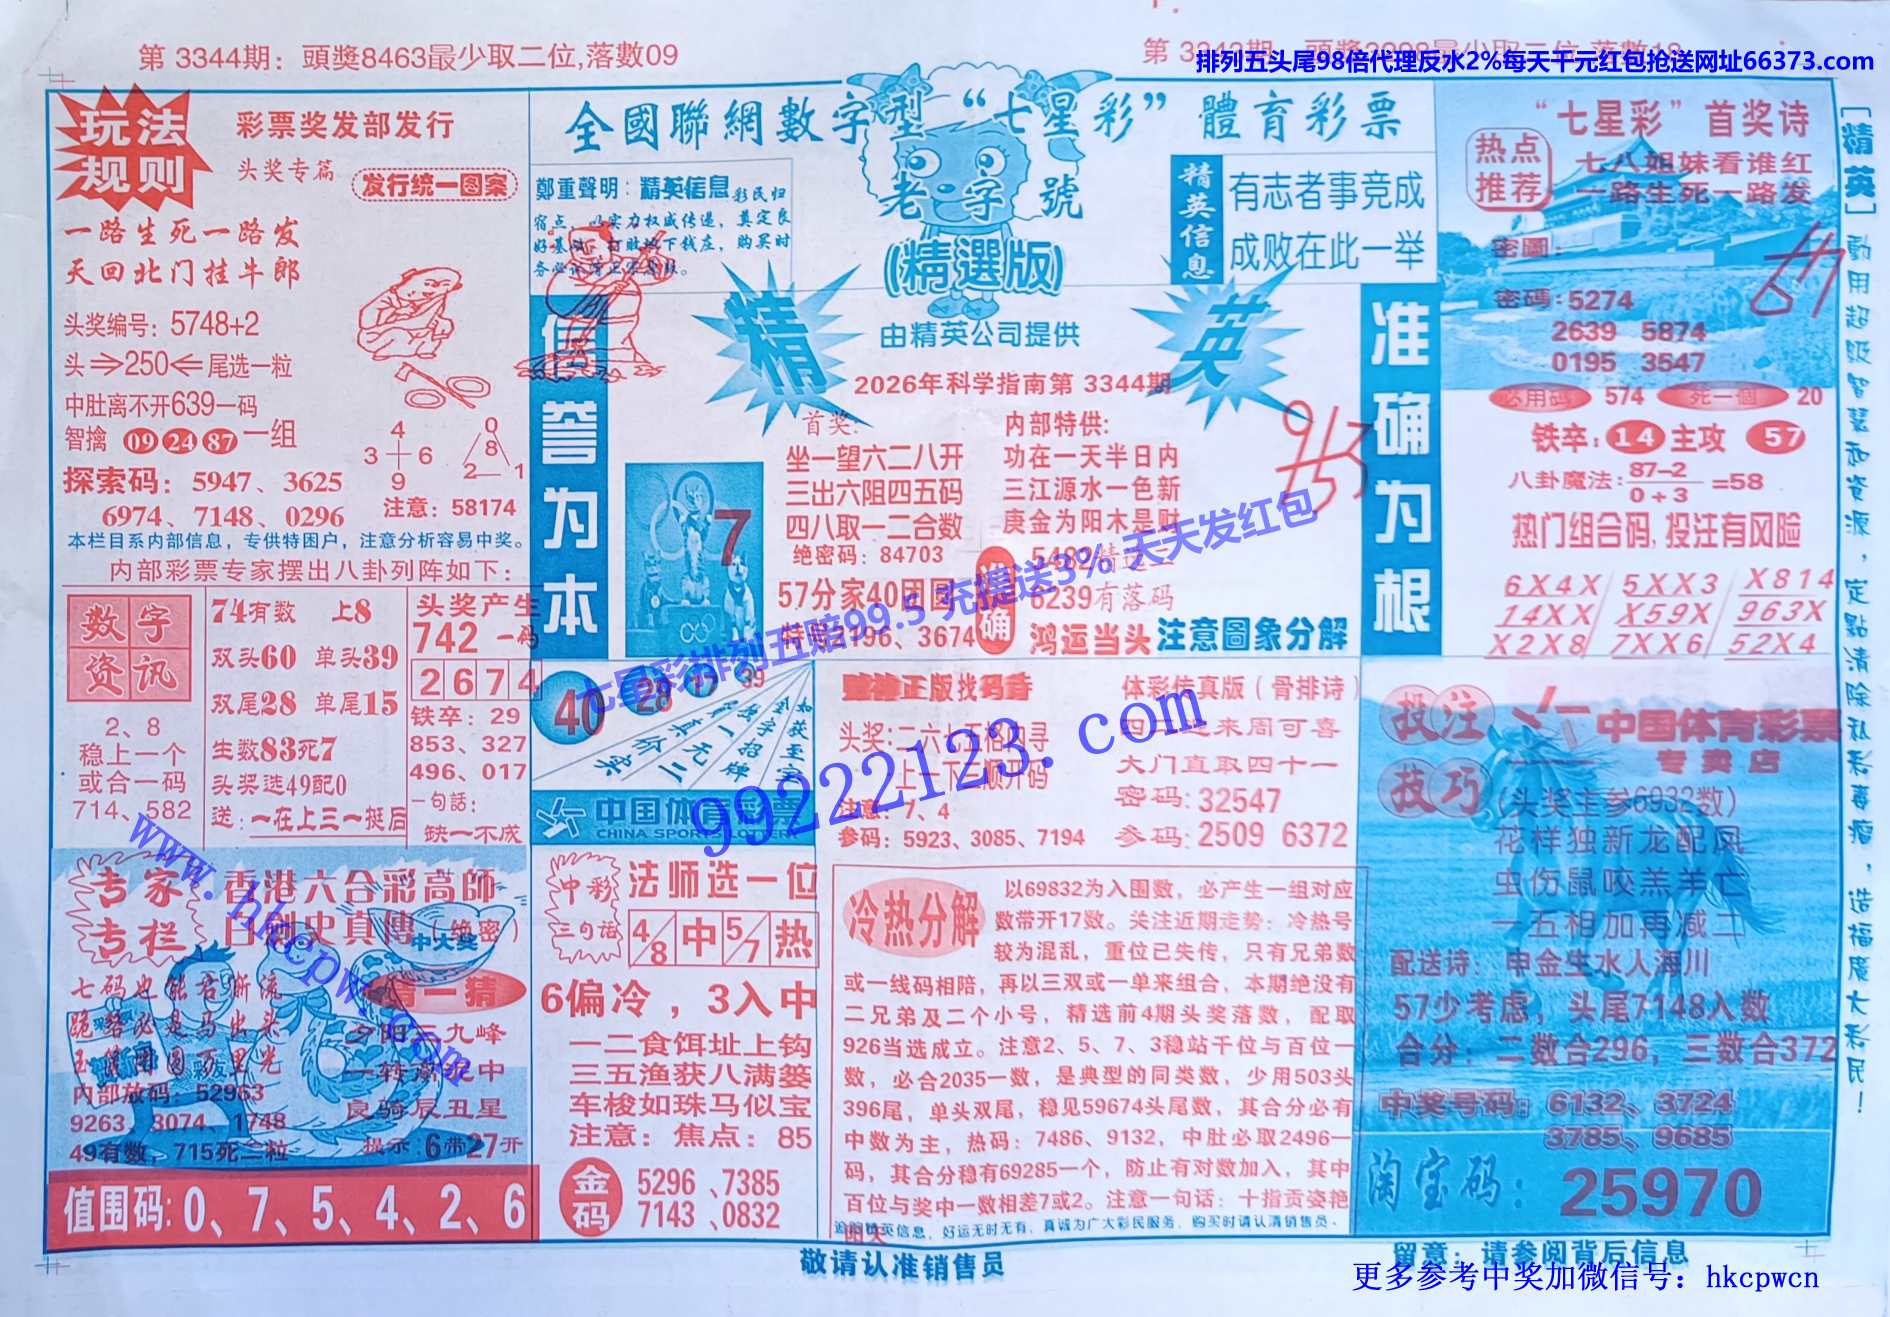 第 3344期: 頭獎8463最少取二位,落數09
排列五头尾98倍代理反水2%每天千元红包抢送网址66373.com
玩法规则
彩票奖发部发行
头奖专篇
发行统一图案
一路生死一路发
天回北门挂牛郎
头奖编号: 5748+2
头⇒250⇐尾选一粒
中肚离不开639一码
智擒 09 24 87 一组
4
3 6
9
0
8
2 1
探索码: 5947、3625
6974、7148、0296
注意: 58174
本栏目系内部信息, 专供特困户, 注意分析容易中奖。
内部彩票专家摆出八卦列阵如下:
数字资讯
2、8
稳上一个
或合一码
714、582
74有数 上8
双头60 单头39
双尾28 单尾15
生数83死7
头奖选49配0
送: 一在上三一挺后
头奖产生
742 一码
2674
铁卒: 29
853、327
496、017
一句話:
缺一不成
专家专栏
香港六合彩高師
白劍史真傳(绝密)
中大奖
七码也能吞渐流
内部放码: 52963
9263、3074、1748
49有数, 715死二粒
猜一猜
夕阳三九峰
良骑辰丑星
提示: 6带27开
值围码: 0、7、5、4、2、6
全國聯網數字型“七星彩”體育彩票
老字號
(精選版)
由精英公司提供
鄭重聲明: 精英信息彩民归
宿点, 以实力权威传递, 奠定良
精英信息
有志者事竞成
成败在此一举
信誉为本
精英
准确为根
2026年科学指南第 3344期
首奖:
坐一望六二八开
三出六阻四五码
四八取一二合数
绝密码: 84703
57分家40团圆
特贴2196、3674
7
内部特供:
功在一天半日内
三江源水一色新
庚金为阳木是财
准确
6239有落码
鸿运当头 注意圖象分解
963
七星彩排列五赔99.5 充提送3% 天天发红包
40 28 17 6 39
如获至宝
金字招牌
中国体育彩票
CHINA SPORTS LOTTERY
冲彩三句话
法师选一位
4/8 中 5/7 热
6偏冷, 3入中
一二食饵址上钩
三五渔获八满篓
车梭如珠马似宝
注意: 焦点: 85
金码
5296、7385
7143、0832
财神正版找码诗
头奖: 二六七五格内寻
上一下二顺开码
注意: 7、4
参码: 5923、3085、7194
体彩传真版(骨排诗)
四二进来周可喜
大门直取四十一
密码: 32547
参码: 2509 6372
99222123.com
www.hkcpw.com
冷热分解
以69832为入围数, 必产生一组对应
数带开17数。关注近期走势: 冷热号
较为混乱, 重位已失传, 只有兄弟数
或一线码相陪, 再以三双或一单来组合, 本期绝没有
二兄弟及二个小号, 精选前4期头奖落数, 配取
926当选成立。注意2、5、7、3稳站千位与百位一
数, 必合2035一数, 是典型的同类数, 少用503头
396尾, 单头双尾, 稳见59674头尾数, 其合分必有
中数为主, 热码: 7486、9132, 中肚必取2496一
码, 其合分稳有69285一个, 防止有对数加入, 其中
百位与奖中一数相差7或2。注意一句话: 十指贡姿艳
阳天
追踪精英信息, 好运无时无有, 真诚为广大彩民服务, 购买时请认清销售员。
“七星彩”首奖诗
热点推荐
七八姐妹看谁红
一路生死一路发
密圖:
密碼: 5274
2639 5874
0195 3547
必用码 574 死一個 20
铁卒: 14 主攻 57
八卦魔法: 87-2/0+3 =58
热门组合码,投注有风险
6X4X 5XX3 X814
14XX X59X 963X
X2X8 7XX6 52X4
投注技巧
中国体育彩票
专卖店
(头奖主参6932数)
花样独新龙配凤
虫伤鼠咬羔羊亡
一五相加再减二
配送诗: 申金生水人海川
57少考虑, 头尾7148入数
合分: 二数合296, 三数合372
中奖号码: 6132、3724
3785、9685
淘宝码: 25970
[精英]動用超级智慧和资源, 定點清除私彩毒瘤, 造福廣大彩民!
敬请认准销售员
留意: 请参阅背后信息
更多参考中奖加微信号: hkcpwcn